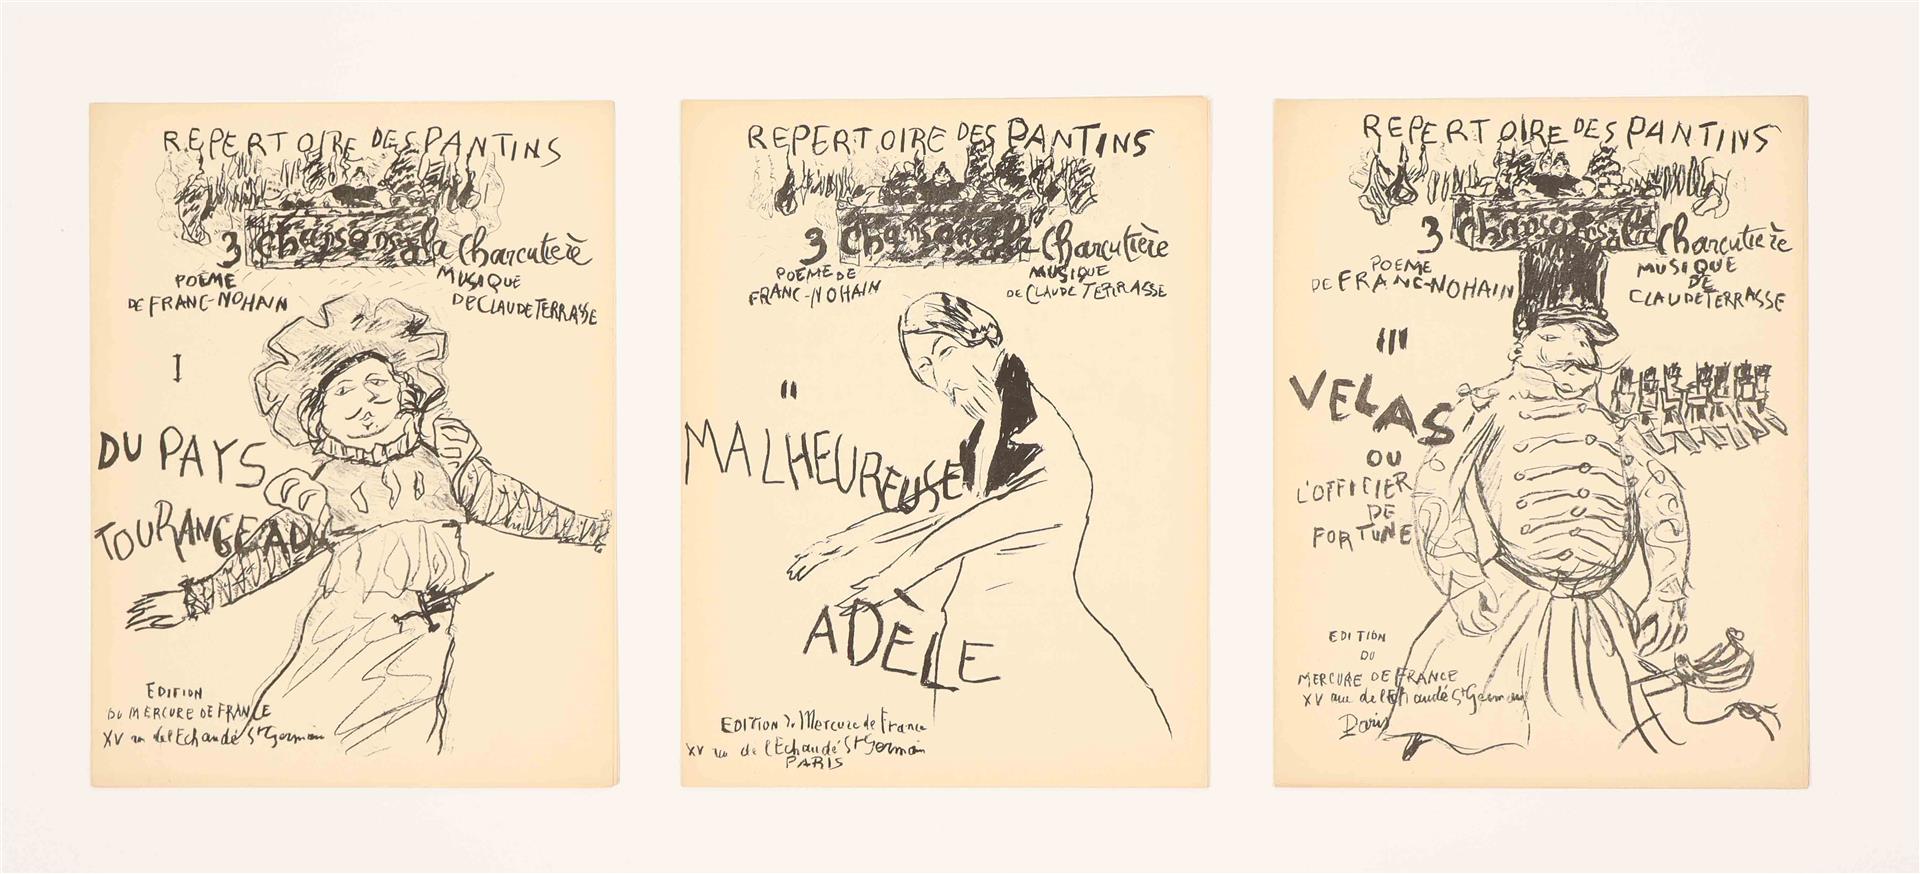 REPERTOIRE DES PANTINS
3 chansons à la Charcutière
POÈME
DE FRANC-NOHAIN
MUSIQUE
DE CLAUDE TERRASSE
I
DU PAYS
TOURANGEAU
EDITION
DU MERCURE DE FRANCE
XV rue de l'Echaudé St Germain
REPERTOIRE DES PANTINS
3 chansons à la Charcutière
POEME DE
FRANC-NOHAIN
MUSIQUE
DE CLAUDE TERRASSE
II
MALHEUREUSE
ADÈLE
EDITION du Mercure de France
XV rue de l'Echaudé St Germain
PARIS
REPERTOIRE DES PANTINS
3 chansons à la Charcutière
POEME
DE FRANC-NOHAIN
MUSIQUE
DE
CLAUDE TERRASSE
III
VELAS
OU
L'OFFICIER
DE
FORTUNE
EDITION
DU
MERCURE DE FRANCE
XV rue de l'Echaudé St Germain
Paris